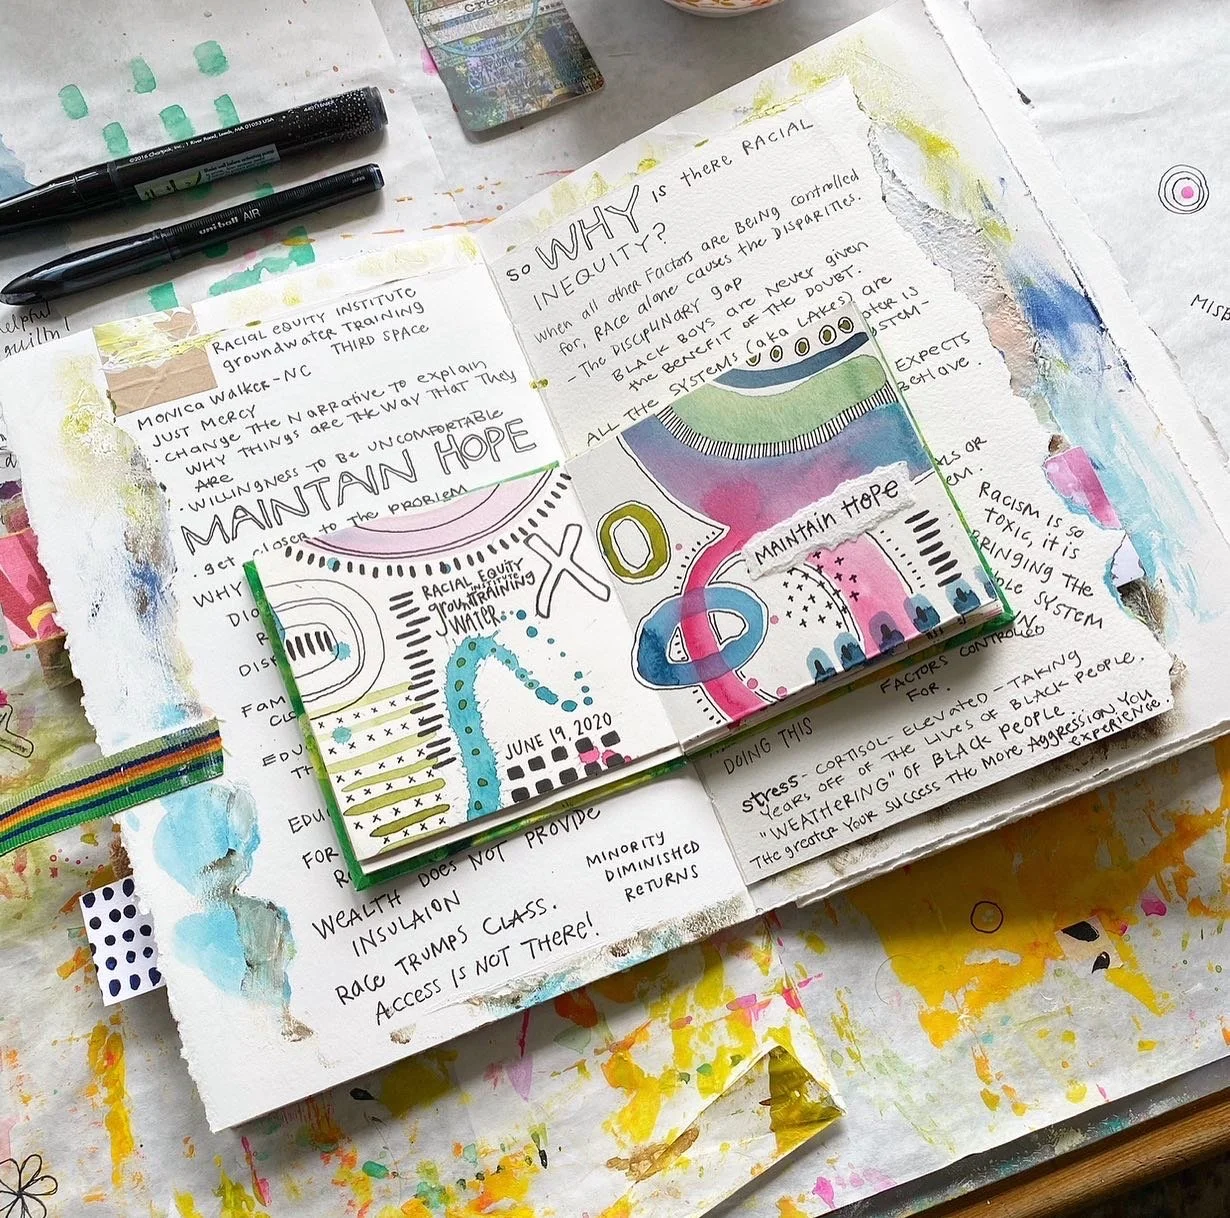 crea
©2016 Chartpak, Inc., 1 River Road, Leeds, MA 01053 USA
uni-ball AIR
JAPAN
helpful
guilty!
RACIAL EQUITY INSTITUTE
groundwater TRAINING
THIRD SPACE
MONICA WALKER-NC
JUST MERCY
· CHANGE THE NARRATIVE TO EXPLAIN
WHY THINGS ARE THE WAY THAT THEY
ARE
· WILLINGNESS TO BE UNCOMFORTABLE
MAINTAIN HOPE
· get closer to the problem
WHY
FAM
EDU
EDU
FOR
PROVIDE
WEALTH DOES NOT
INSULAION
RACE TRUMPS CLASS.
ACCESS IS NOT THERE!
MINORITY
DIMINISHED
RETURNS
SO WHY IS there RACIAL
INEQUITY?
When all other Factors are Being controlled
for, RACE alone causes the DISPARITIES.
- The DISCIPLINDRY gap
BLACK BOYS are Never given
the BENEFIT OF THE DOUBT.
ALL THE SYSTEMS (aka LAKES) are
EXPECTS
BEHAVE.
RACISM IS SO
TOXIC, it is
BRINGING THE
SYSTEM
FACTORS CONTROLLED
FOR.
DOING THIS
stress - CORTISOL - ELEVATED - TAKING
YEARS OFF OF THE LIVES OF BLACK PEOPLE.
"WEATHERING" OF BLACK PEOPLE.
The greater your success the more Aggression you
experience
RACIAL EQUITY
INSTITUTE
groundTRAINING
WATER
XO
JUNE 19, 2020
MAINTAIN HOPE
MISB